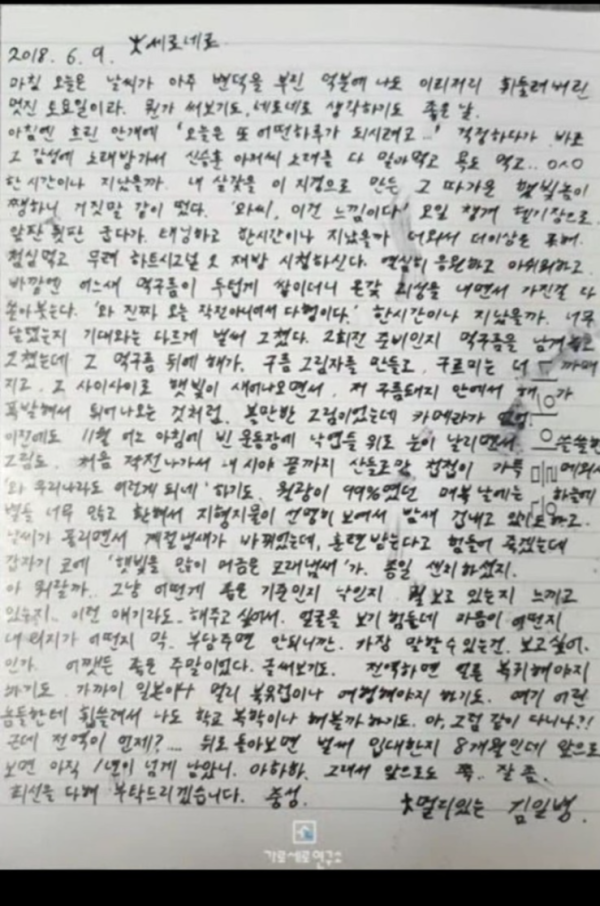 2018. 6. 9. 세로네로
마침 오늘은 날씨가 아주 변덕을 부린 덕분에 나도 이리저리 휘둘려버린
멋진 토요일이라. 뭔가 써보기도, 세로네로 생각하기도 좋은 날.
아침엔 흐린 안개에 '오늘은 또 어떤하루가 되시려고...' 걱정하다가 바로
그 감성에 노래방가서 신승훈 아저씨 노래를 다 말아먹고 욕도 먹고..
한시간이나 지났을까. 내 살갗을 이 지경으로 만든 그 따가운 햇빛놈이
쨍하니 거짓말 같이 떴다. '와씨, 이건 느낌이다' 오일 챙겨 헬기장으로.
앞판 뒷판 굽다가. 태닝하고 한시간이나 지났을까 더워서 더이상은 포기.
점심먹고 무려 하트시그널 오 재방 시청하신다. 열심히 응원하고 아쉬워하고.
바깥엔 어느새 먹구름이 두텁게 쌓이더니 온갖 괴성을 내면서 가진걸 다
쏟아붓는다. '와 진짜 오늘 작전아니여서 다행이다.' 한시간이나 지났을까. 너무
달렸는지 기대와는 다르게 벌써 그쳤다. 2회전 준비인지 먹구름을 남겨
그쳤는데 그 먹구름 뒤에 해가. 구름 그림자를 만들고, 구르미는 더 까매
지고. 그 사이사이로 햇빛이 새어나오면서. 저 구름돼지 안에서 해 가
폭발해서 튀어나오는 것처럼. 볼만한 그림이었는데 카메라가
이전에도 11월 어느 아침에 빈 운동장에 낙엽들 위로 눈이 날리면서 쓸쓸한
그림도. 처음 작전나가서 내 시야 끝까지 산들로만 첩첩이 가득 메워서
'와 우리나라도 이런게 되네' 하기도. 월광이 99%였던 매복 날에는 하늘에
별들 너무 많고 환해서 지형지물이 선명히 보여서 밤새 겁내고 있기도하고.
날씨가 풀리면서 계절냄새가 바뀌었는데, 훈련받는다고 힘들어 죽겠는데
갑자기 코에 '햇빛을 많이 머금은 모래냄새'가. 종일 센치하셨지.
아 뭐랄까.. 그냥 어떻게 좁은 기준인지 낙인지 뭘 보고 있는지 느끼고
있는지.. 이런 얘기라도.. 해주고 싶어서. 얼굴을 보기 힘든데 마음이 어떤지
내 의지가 어떤지 막. 부담주면 안되니깐. 가장 말할수있는건. 보고싶어.
인가. 어쨌든 좋은 주말이었다. 글써보기도. 전역하면 얼른 복귀해야지
하기도. 가까이 일본이나 멀리 북유럽이나 여행해야지 하기도. 여기 어린
놈들한테 휩쓸려서 나도 학교 복학이나 해볼까 하기도. 아, 그럼 같이 다니나?!
근데 전역이 언제?.... 뒤로 돌아보면 벌써 입대한지 8개월인데 앞으로
보면 아직 1년이 넘게 남았니. 아하하. 그래서 앞으로도 쭉.. 잘 좀.
최선을 다해 부탁드리겠습니다. 충성.
멀리있는 김일병.
가로세로연구소